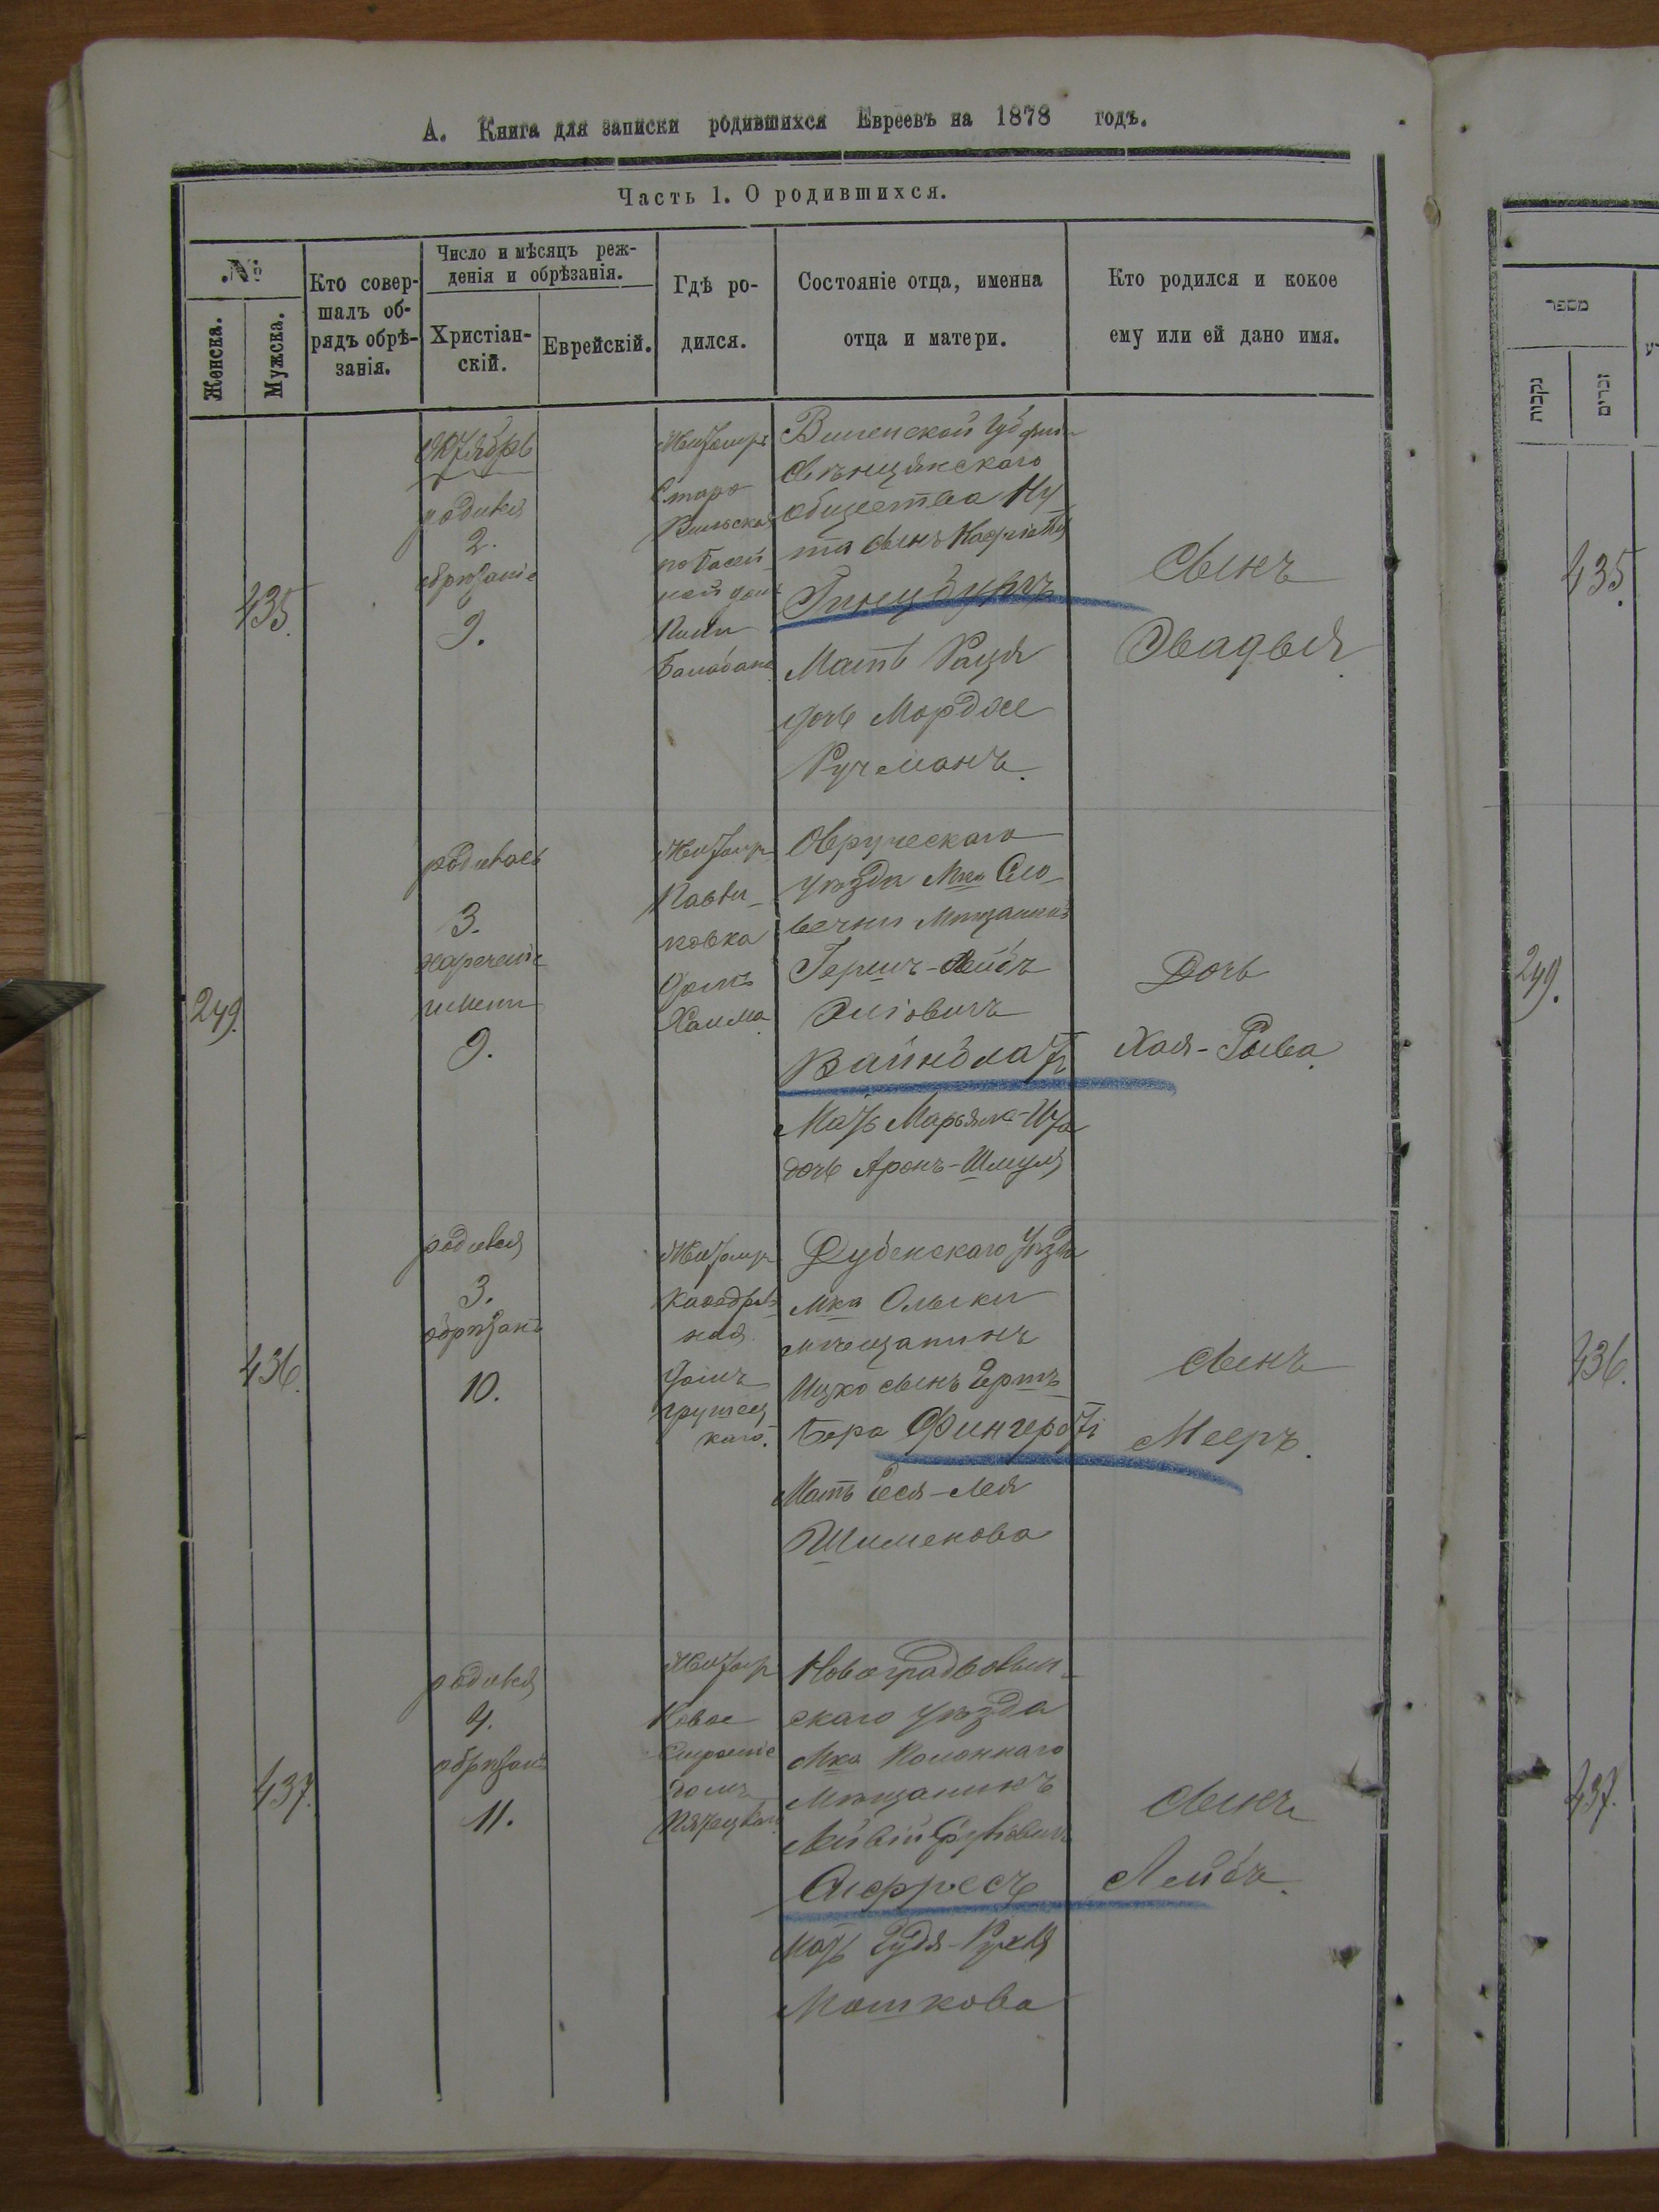 А. Книга для записки родившихся Евреевъ на 1878 годъ.
Часть 1. О родившихся.
№
Женска.
Мужска.
Кто совер-
шалъ об-
рядъ обрѣ-
занія.
Число и мѣсяцъ реж-
денія и обрѣзанія.
Христіан-
скій.
Еврейскій.
Гдѣ ро-
дился.
Состояніе отца, именна
отца и матери.
Кто родился и кокое
ему или ей дано имя.
435.
Октябрь
родився
2.
обрѣзаніе
9.
Житомръ
Старо
Вильская
Балабана
Виленской Губерн
Свѣнцянскаго
общества Ну
та сынъ
Гинцбургъ
Мать Рация
дочь Мордхе
Ручманъ.
Сынъ
Овадья.
249.
родилась
3.
нареченіе
имени
9.
Житомр
Павли-
ковка
домъ
Хаима.
Овручскаго
уѣзда Мка Сло-
вечни Мѣщанинъ
Гершъ-Лейбъ
Эліовичъ
Вайнблатъ
Мать Марьям-Ита
дочь Аронъ-Шмуля
Дочь
Хая-Рыва.
436.
родився
3.
обрѣзанъ
10.
Житомр
Кафедраль
ная
домъ
каго.
Дубенскаго Уѣзда
Мка Олыки
мѣщанинъ
Ицко сынъ Гершъ
Бера Фингеротъ
Мать Еся-Лея
Шименова
Сынъ
Мееръ.
437.
родився
4.
обрѣзанъ
11.
Житомр
Новое
Строеніе
домъ
Новоградволын-
скаго уѣзда
Мка Полоннаго
Мѣщанинъ
Мать Гудя-Рухля
Мошкова
Сынъ
Лейбъ.
מספר
נקבות
זכרים
435.
249.
436.
437.